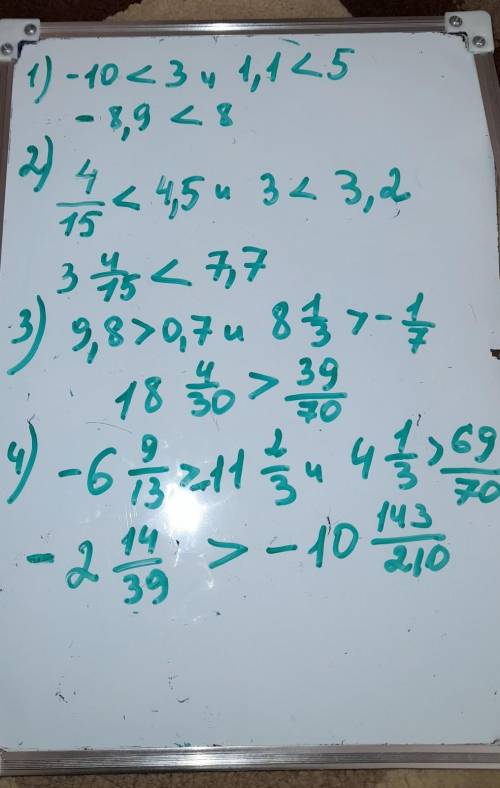 1) -10 < 3 и 1,1 < 5
- 8,9 < 8
2) 4/15 < 4,5 и 3 < 3,2
3 4/15 < 7,7
3) 9,8 > 0,7 и 8 1/3 > - 1/7
18 4/30 > 39/70
4) -6 9/13 > -11 2/3 и 4 1/3 > 69/70
- 2 14/39 > - 10 143/210